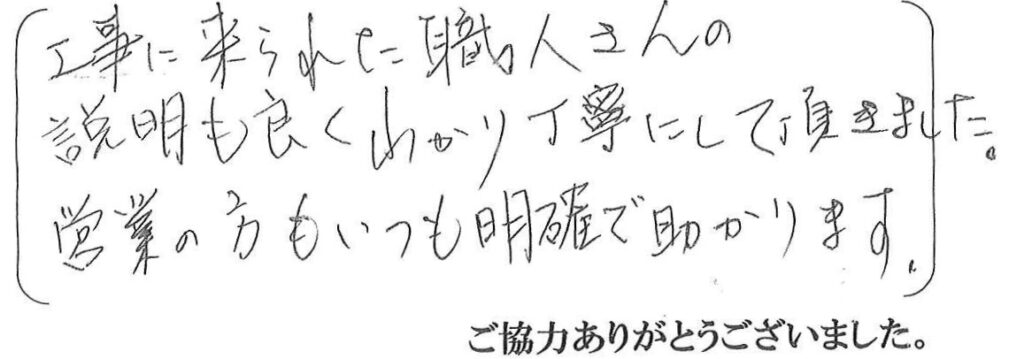 工事に来られた職人さんの
説明も良くわかり丁寧にして頂きました。
営業の方もいつも明確で助かります。
ご協力ありがとうございました。